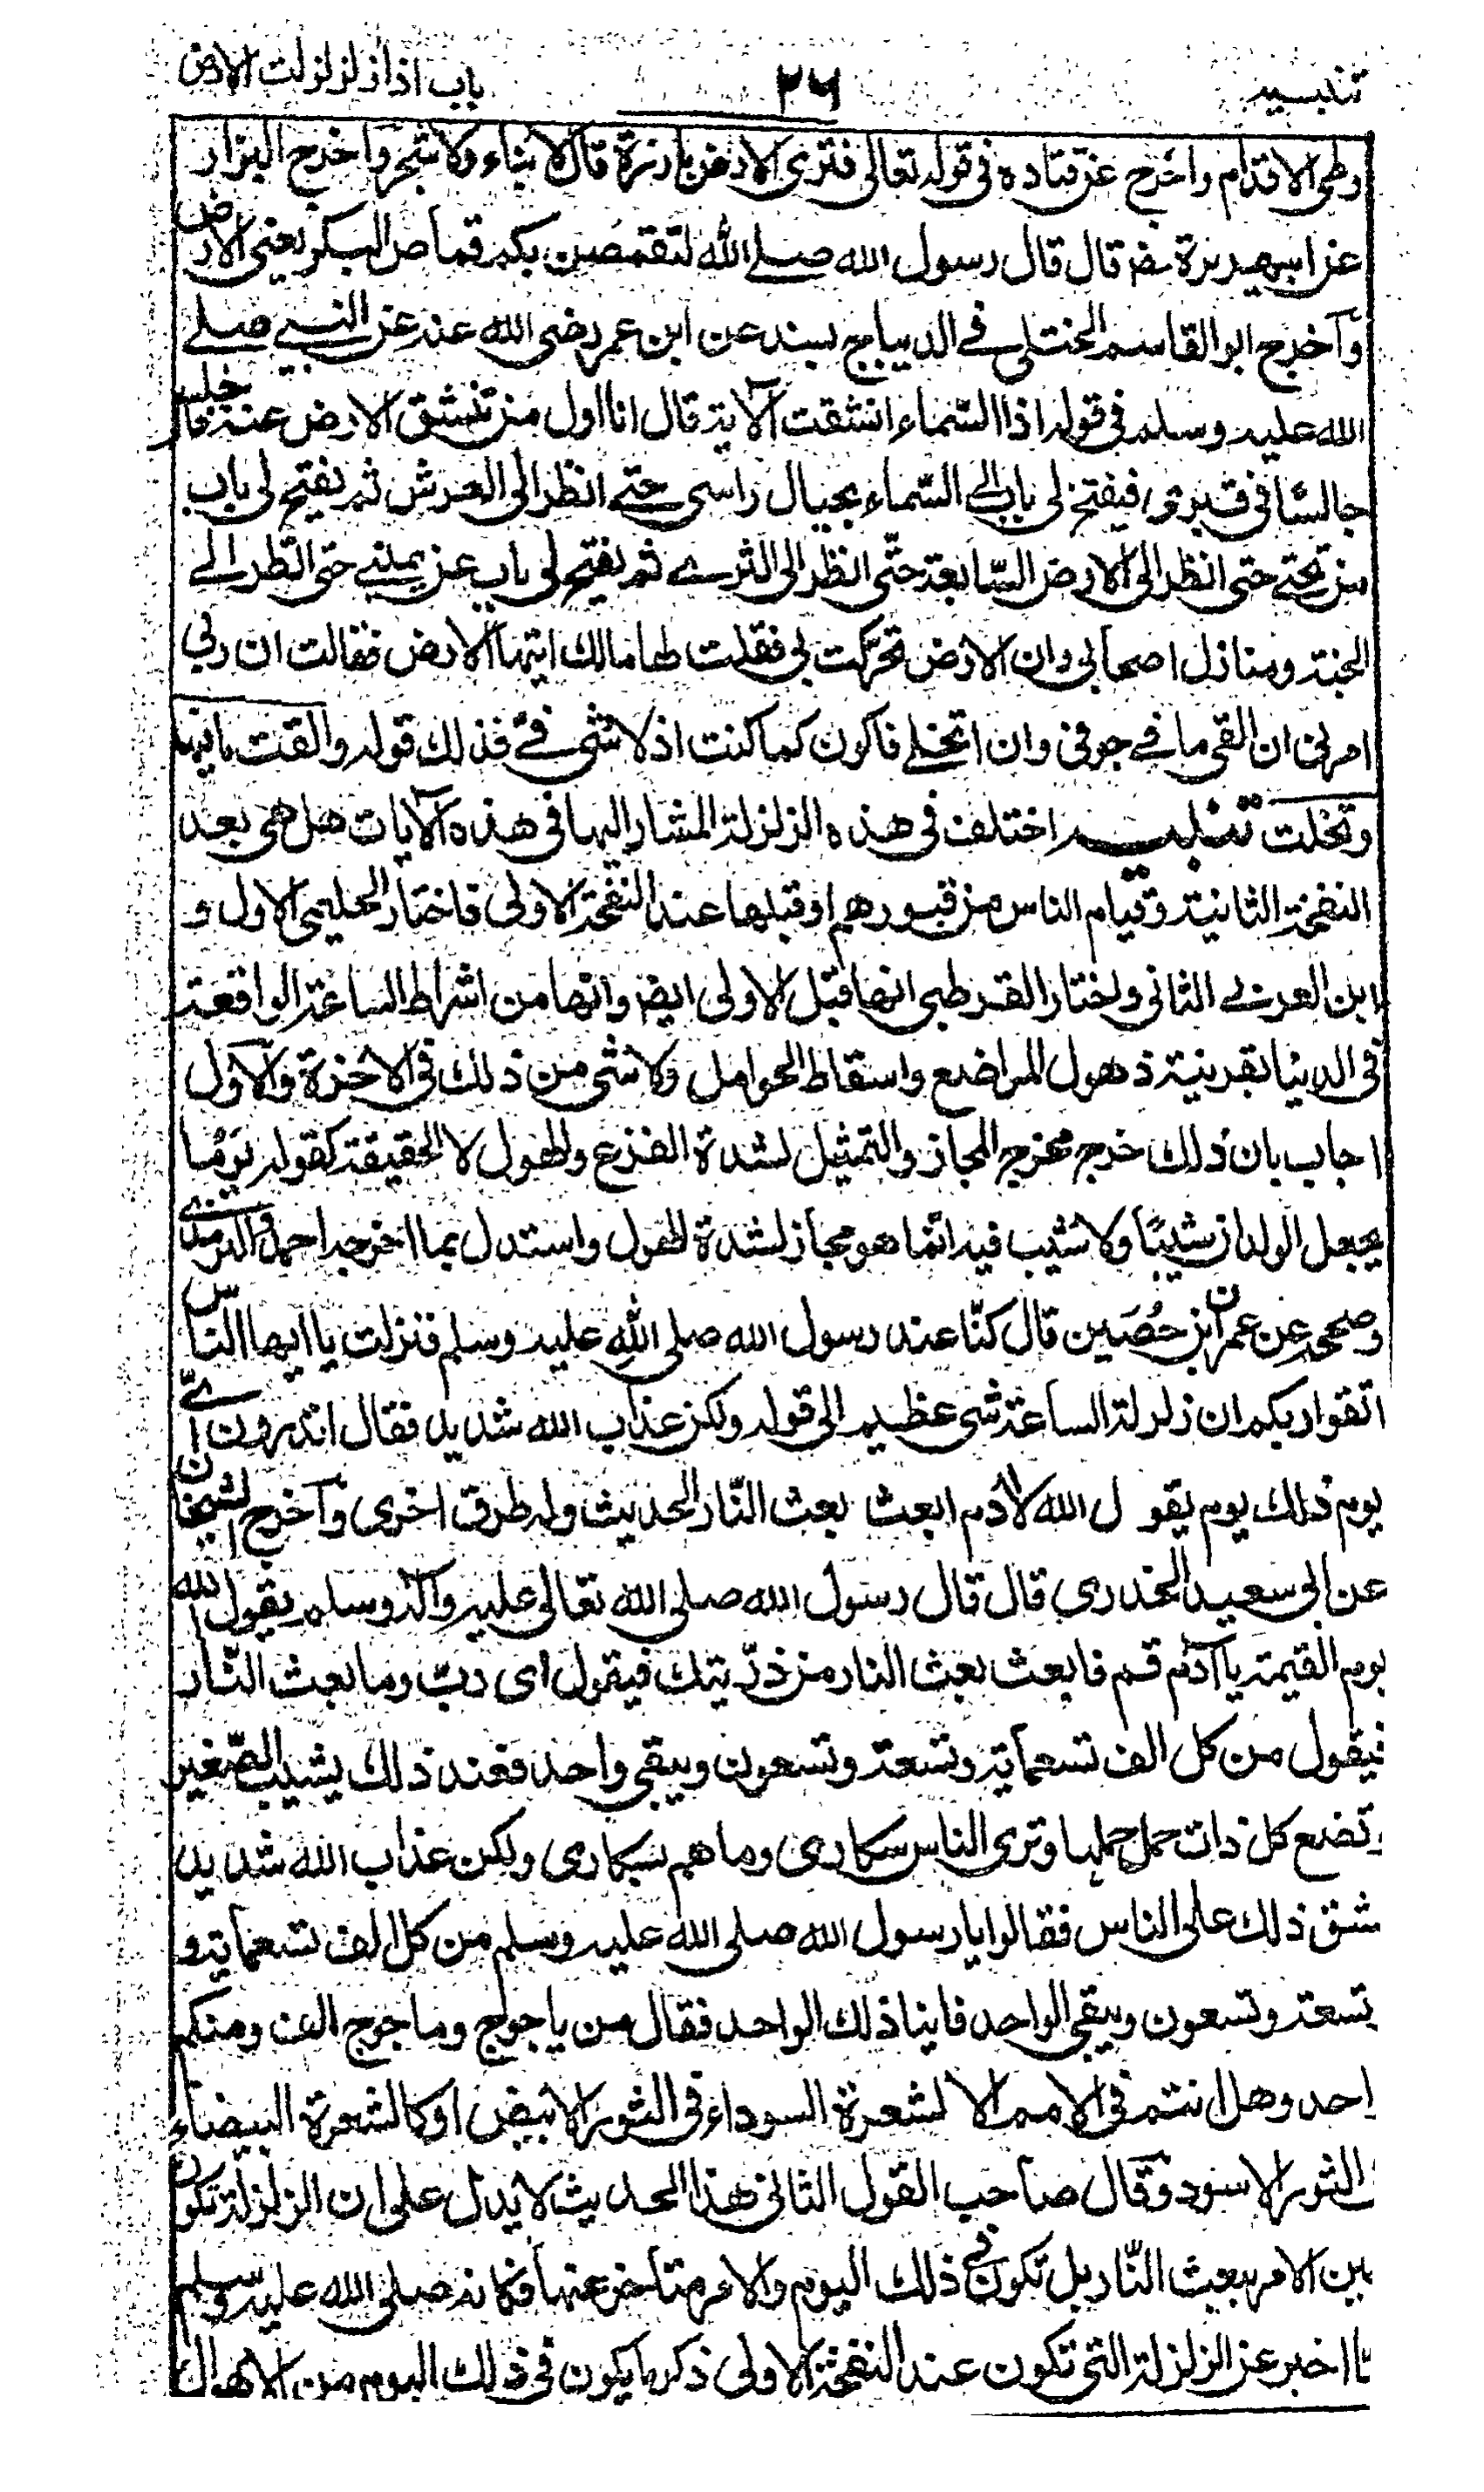 تنبيه ٢٦ باب اذا زلزلت الارض
وطى الاقدام واخرج عن قتاده فى قوله تعالى فترى الارض بارزة قال لا بناء ولا شجر واخرج البزار
عن ابى هريرة رضـ قال قال رسول الله صلے الله لتقمصن بكم قماص البكر يعنى الارض
وآخرج ابو القاسم الختلى فے الديباج بسنده عن ابن عمر رضى الله عنه عن النبے صلے
الله عليه وسلم فى قوله اذا السّماء انشقت الآية قال انا اول من تنشق الارض عنه فاجلس
جالسًا فى قبرى فيفتح لى باب الے السّماء بحيال راسى حتے انظر الى العرش ثم يفتح لى باب
من تحتے حتى انظر الى الارض السّابعة حتّى انظر الى الثرے ثم يفتح لى باب عن يمينے حتى انظر الے
الجنة ومنازل اصحابى وان الارض تحرّكت بى فقلت لها مالك ايتها الارض فقالت ان ربي
امرنى ان القى ما فے جوفى وان اتخلے فاكون كما كنت اذ لا شى فےّ فذلك قوله والقت ما فيها
وتخلت تنبيه اختلف فى هذه الزلزلة المشار اليها فى هذه الآيات هل هى بعد
النفخة الثانية وقيام الناس من قبورهم او قبلها عند النفخة الاولى فاختار الحليمى الاول و
ابن العربے الثانى واختار القرطبى انها قبل الاولى ايضـ وانها من اشراط الساعة الواقعة
فى الدنيا بقرينة ذهول المراضع واسقاط الحوامل ولا شى من ذلك فى الآخرة والآول
اجاب بان ذلك خرج مخرج المجاز والتمثيل لشدة الفزع والهول لا الحقيقة كقوله يَومًا
يجعل الولدان شيبًا ولا شيب فيه انّما هو مجاز لشدة الهول واستدل بما اخرجه احمد والترمذے
وصححه عن عمران بن حُصَين قال كنّا عند رسول الله صلى الله عليه وسلم فنزلت يا ايها الناس
اتقوا ربكم ان زلزلة الساعة شى عظيم الى قوله ولكن عذاب الله شديد فقال اتدرون اےّ
يوم ذلك يوم يقول الله لآدم ابعث بعث النّار الحديث وله طرق اخرى وآخرج الشيخان
عن ابى سعيد الخدري قال قال رسول الله صلى الله تعالى عليه وآله وسلم يقول الله
يوم القيمة يا آدم قم فابعث بعث النار من ذرّيتك فيقول اى ربّ وما بعث النّار
فيقول من كل الف تسعماية وتسعة وتسعون ويبقى واحد فعند ذلك يشيب الصّغير
وتضع كل ذات حمل حملها وترى الناس سكارى وما هم بسكارى ولكن عذاب الله شديد
شق ذلك على الناس فقالوا يا رسول الله صلى الله عليه وسلم من كل الف تسعماية و
تسعة وتسعون ويبقى الواحد فاينا ذلك الواحد فقال من ياجوج وماجوج الف ومنكم
احد وهل انتم فى الامم الا لشعرة السوداء فى الثور الابيض او كالشعرة البيضاء
الثور الاسود وقال صاحب القول الثانى هذا الحديث لا يدل على ان الزلزلة تكون
بين الامر ببعث النّار بل تكون فے ذلك اليوم والامر متاخر عنها فكانه صلى الله عليه وسلم
ما اخبر عن الزلزلة التى تكون عند النفخة الاولى ذكر ما يكون فى ذلك اليوم من الاهوال